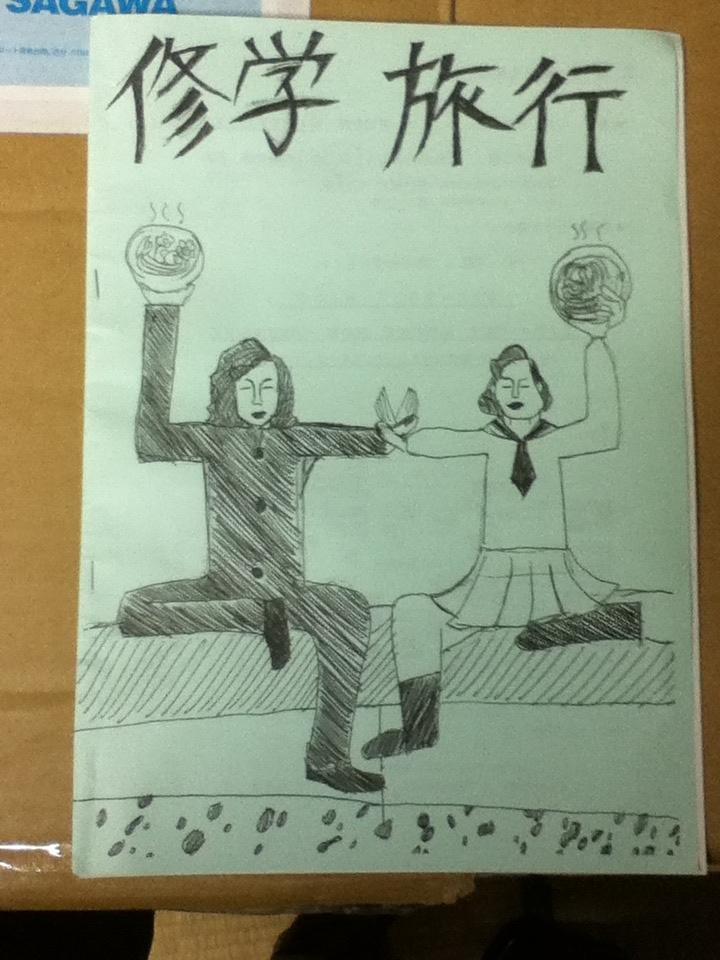 SAGAWA
修学 旅行